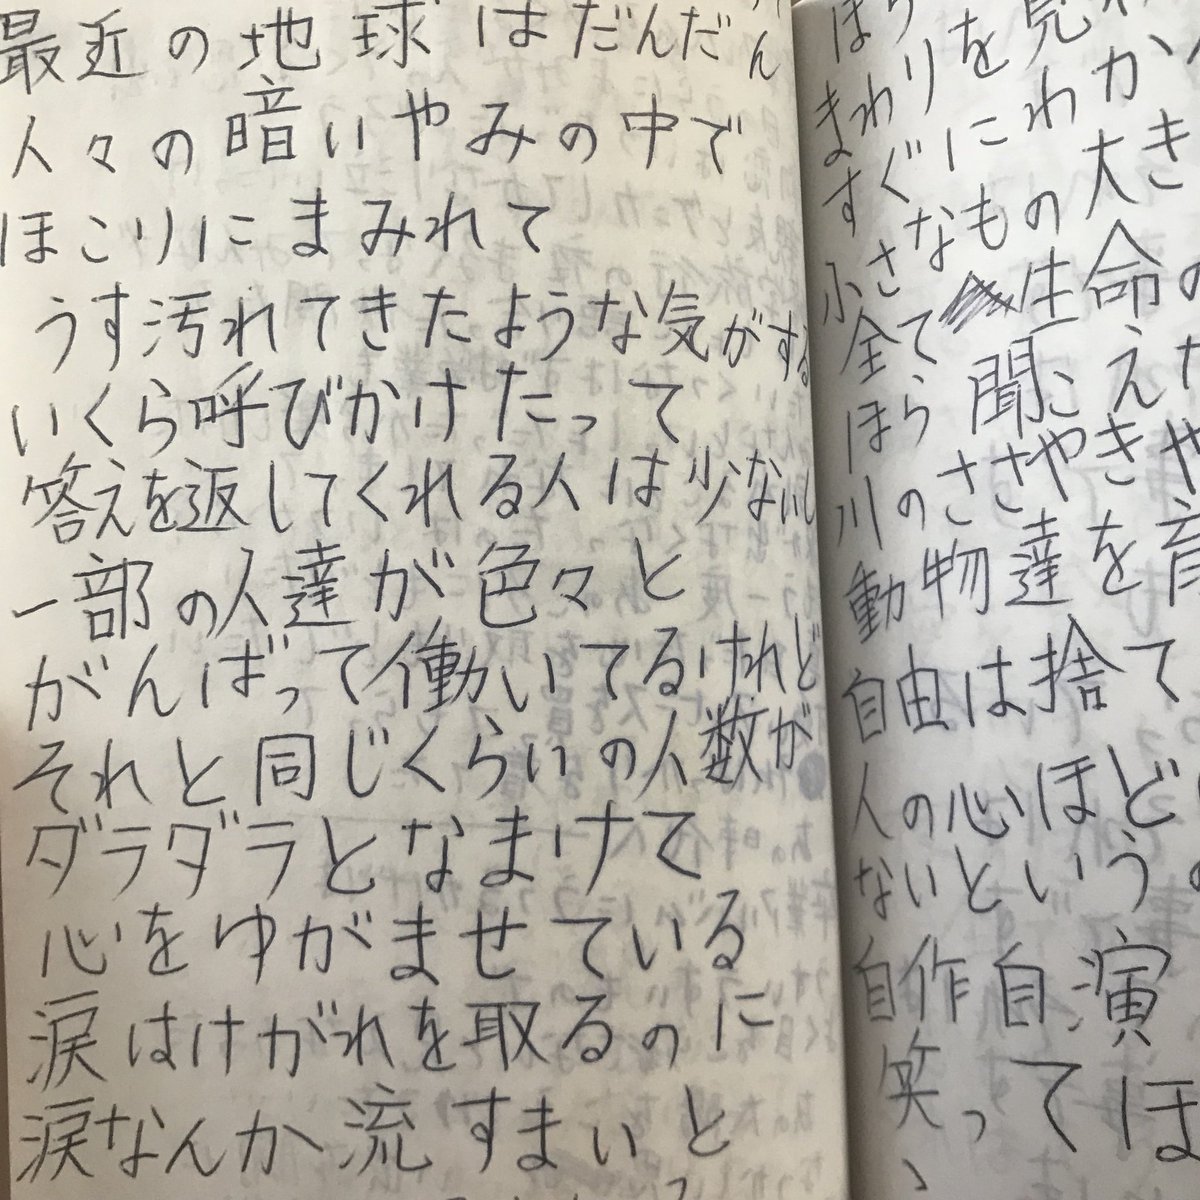 最近の地球はだんだん
人々の暗いやみの中で
ほこりにまみれて
うす汚れてきたような気がする
いくら呼びかけたって
答えを返してくれる人は少ないし
一部の人達が色々と
がんばって働いてるけれど
それと同じくらいの人数が
ダラダラとなまけて
心をゆがませている
涙はけがれを取るのに
涙なんか流すまいと
ほら
まわりを見
すぐにわか
小さなもの大き
全て生命の
ほら聞こえ
川のささやきや
動物達を育
自由は捨て
人の心ほど
ないという
自作自演
笑ってほ